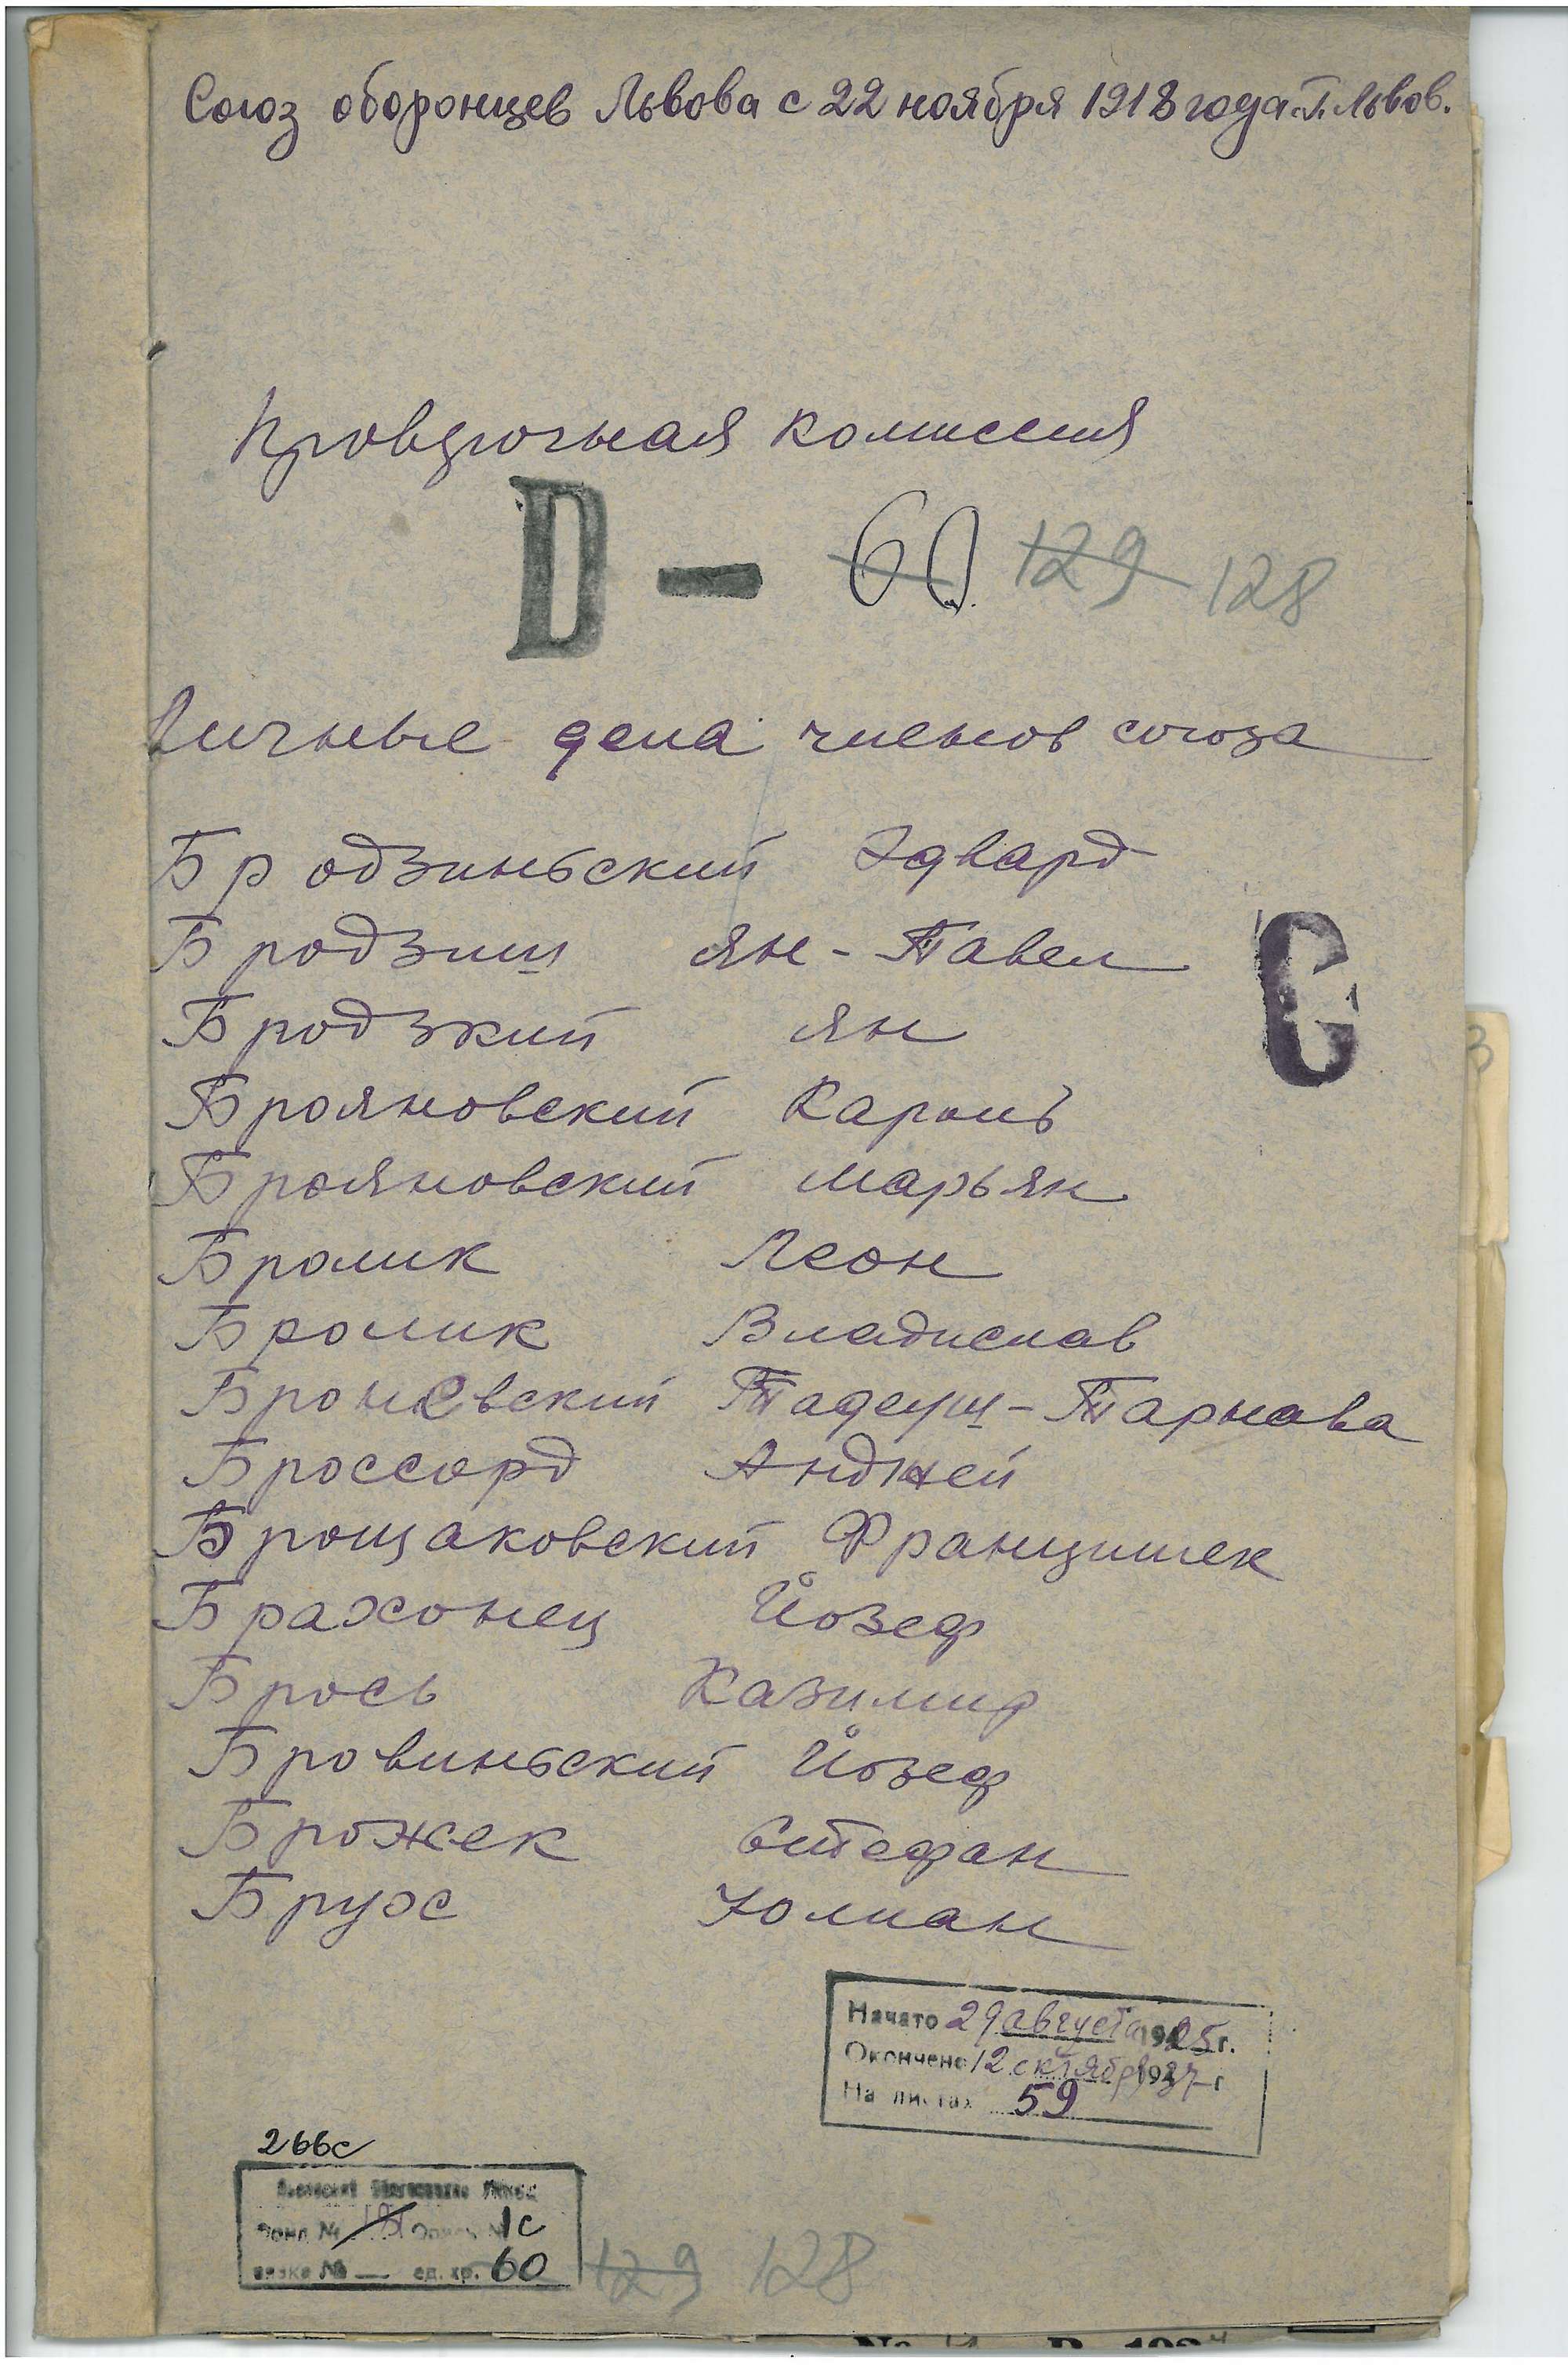 Союз оборонцев Львова с 22 ноября 1918 года. г. Львов.
комиссия
D — 60 129 128
Личные дела членов союза
Бродзиньский Эдвард
Бродзиш Ян-Павел
Бродзкий Ян
Брояновский Кароль
Брояновский Марьян
Бролик Леон
Бролик Владислав
Броневский Тадеуш-Тарнава
C
Броссорд Анджей
Брощаковский Францишек
Брахонец Йозеф
Брось Казимир
Бровиньский Йозеф
Брожек Стефан
Брухс Юлиан
Начато 29 августа 1925 г.
Окончено 12 октября 1937 г
На листах 59
266с
Фонд № Опись № 1с
вязка № — ед. хр. 60
129 128